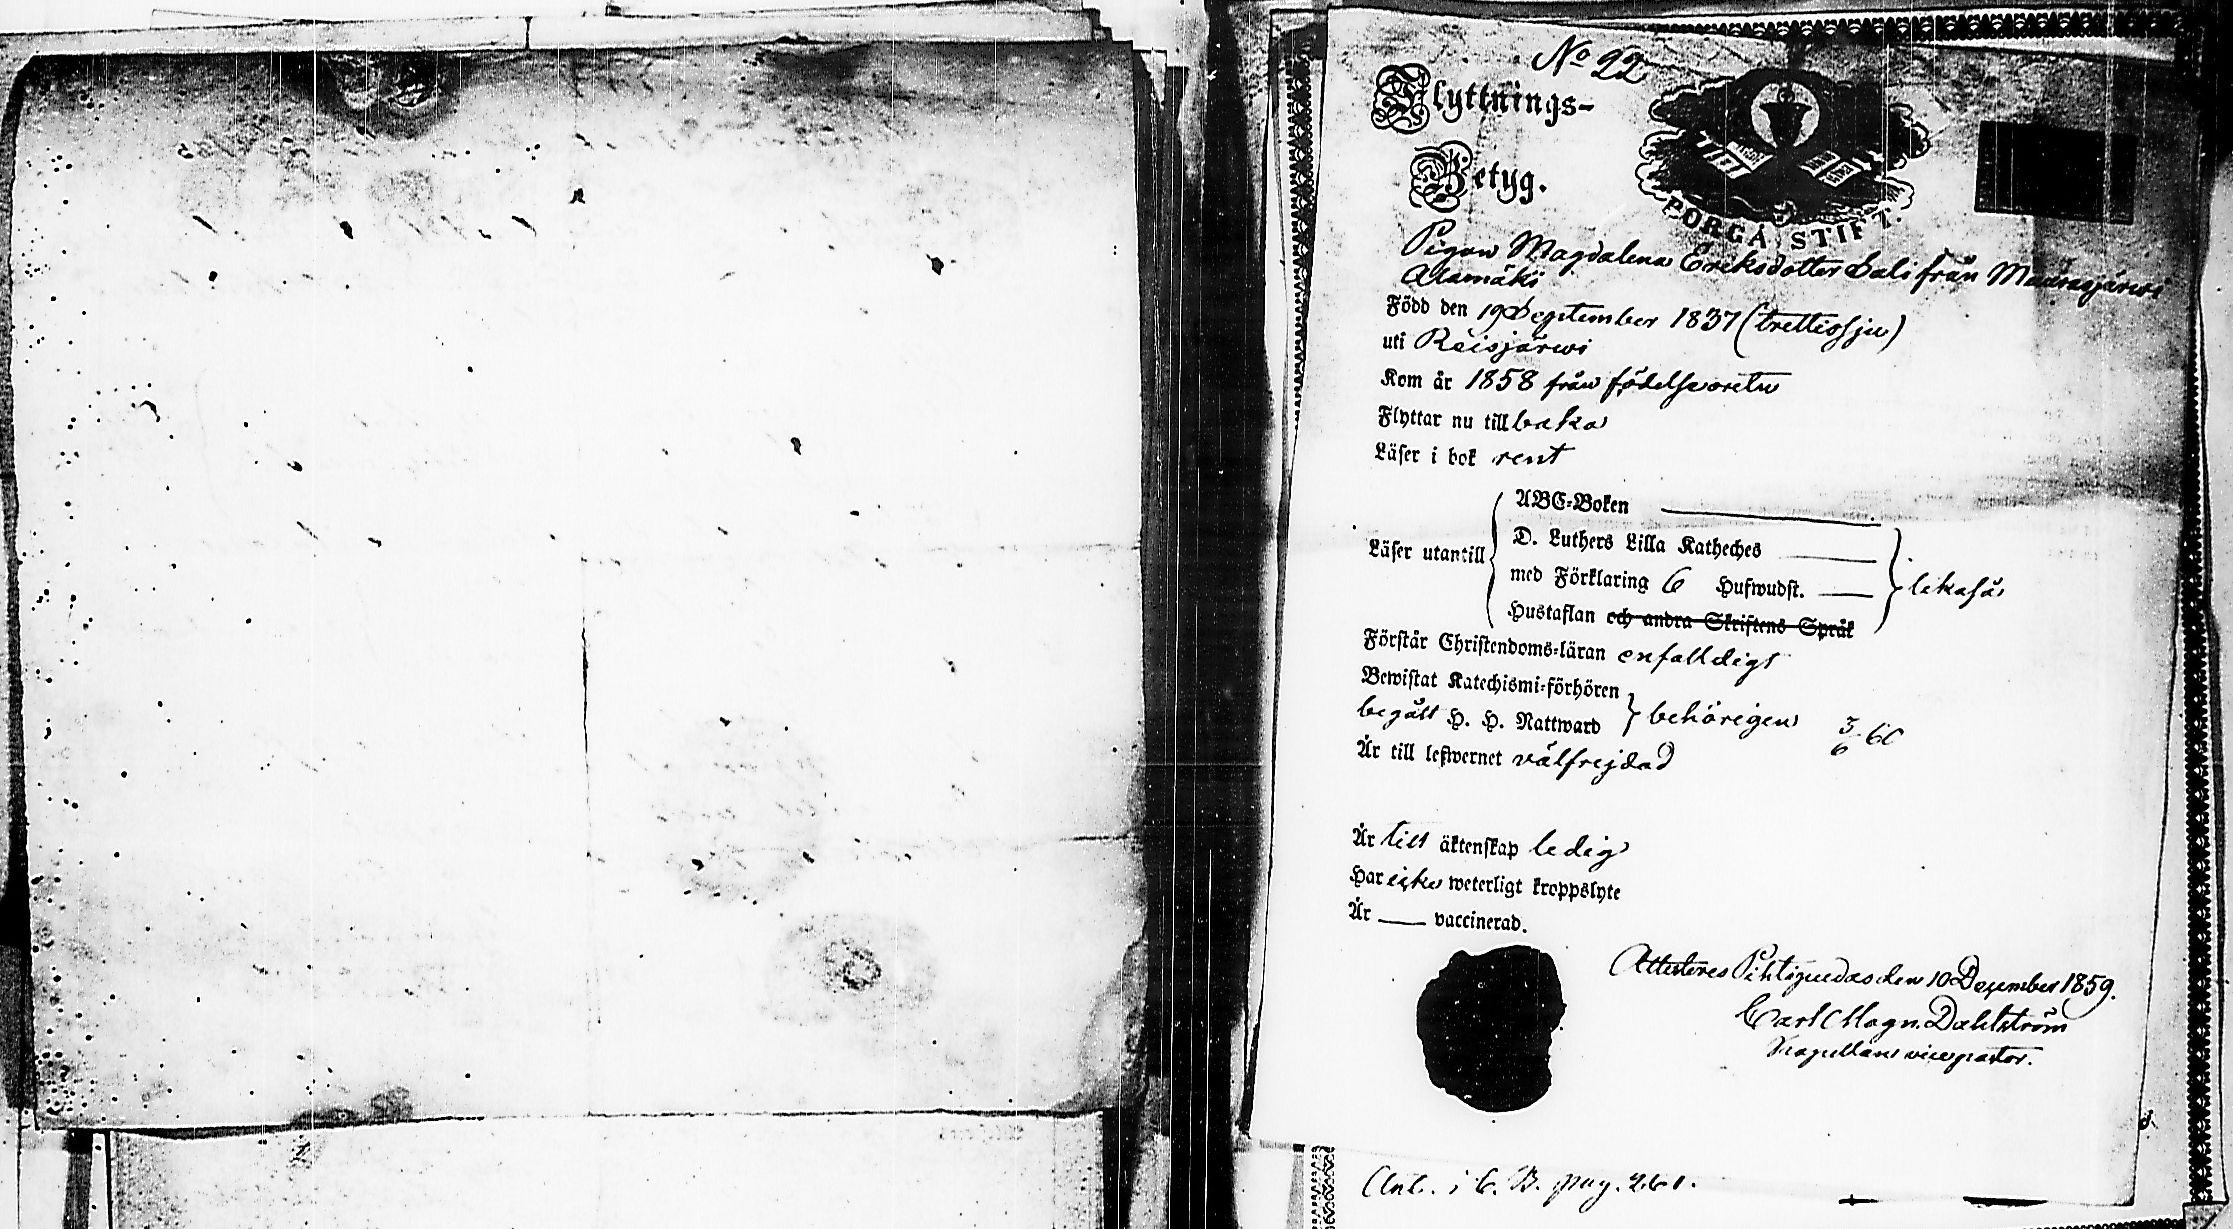 No 22
Flyttnings-
Betyg.
BORGÅ STIFT.
Pigan Magdalena Eriksdotter Sali från
Alamäki
Född den 19 September 1837 (trettiosju)
uti Reisjärwi
Kom år 1858 från födelseorten
Flyttar nu till baka
Läser i bok rent
ABC-Boken
D. Luthers Lilla Katheches
Läser utantill
med Förklaring 6 Hufwudst.
likaså
Hustaflan och andra Skriftens Språk
Förstår Christendoms-läran enfalldigt
Bewistat Katechismi-förhören
begått H. H. Nattward behörigen 3/6 60
Är till lefwernet välfrejdad
Är till äktenskap ledig
Har icke weterligt kroppslyte
Är vaccinerad.
Attesteres Pihtipudas den 10 December 1859.
Carl Magn. Dahlström
Kapellan vicepastor.
Ant. i C. B. pag. 261.